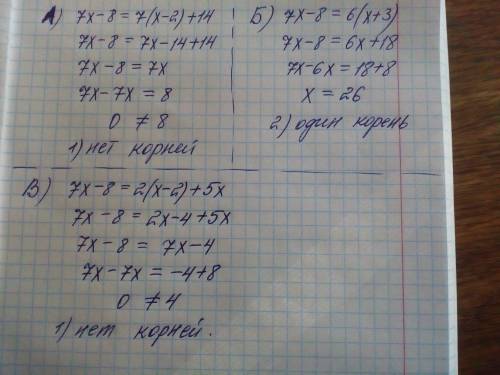 А) 7x-8 = 7(x-2)+14
7x-8 = 7x-14+14
7x-8 = 7x
7x-7x = 8
0 ≠ 8
1) нет корней
Б) 7x-8 = 6(x+3)
7x-8 = 6x+18
7x-6x = 18+8
x = 26
2) один корень
В) 7x-8 = 2(x-2)+5x
7x-8 = 2x-4+5x
7x-8 = 7x-4
7x-7x = -4+8
0 ≠ 4
1) нет корней.